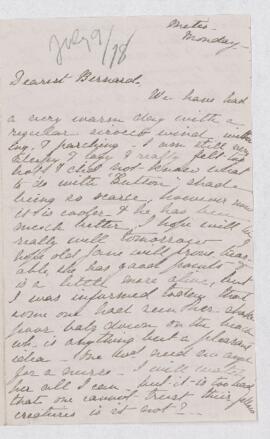 July 9/18
Metis
Monday
Dearest Bernard.
We have had
a very warm day with a
regular sirocco wind
& parching. I am still very
sleepy & lazy I really felt
hot I did not know what
to do with "Button", shade
being so scarce, however now
it is cooler & he has been
much better, I hope will be
really well tomorrow
I hope old Jane will prove bear-
able, she has good points &
is a little more alive, but
I was informed today that
some one had seen her
poor baby down on the beach
wh. is anything but a pleasant
idea - One need an angel
for a nurse. I will watch
her all I can, but it is too bad
that one cannot trust their fellow
creatures is it not? -